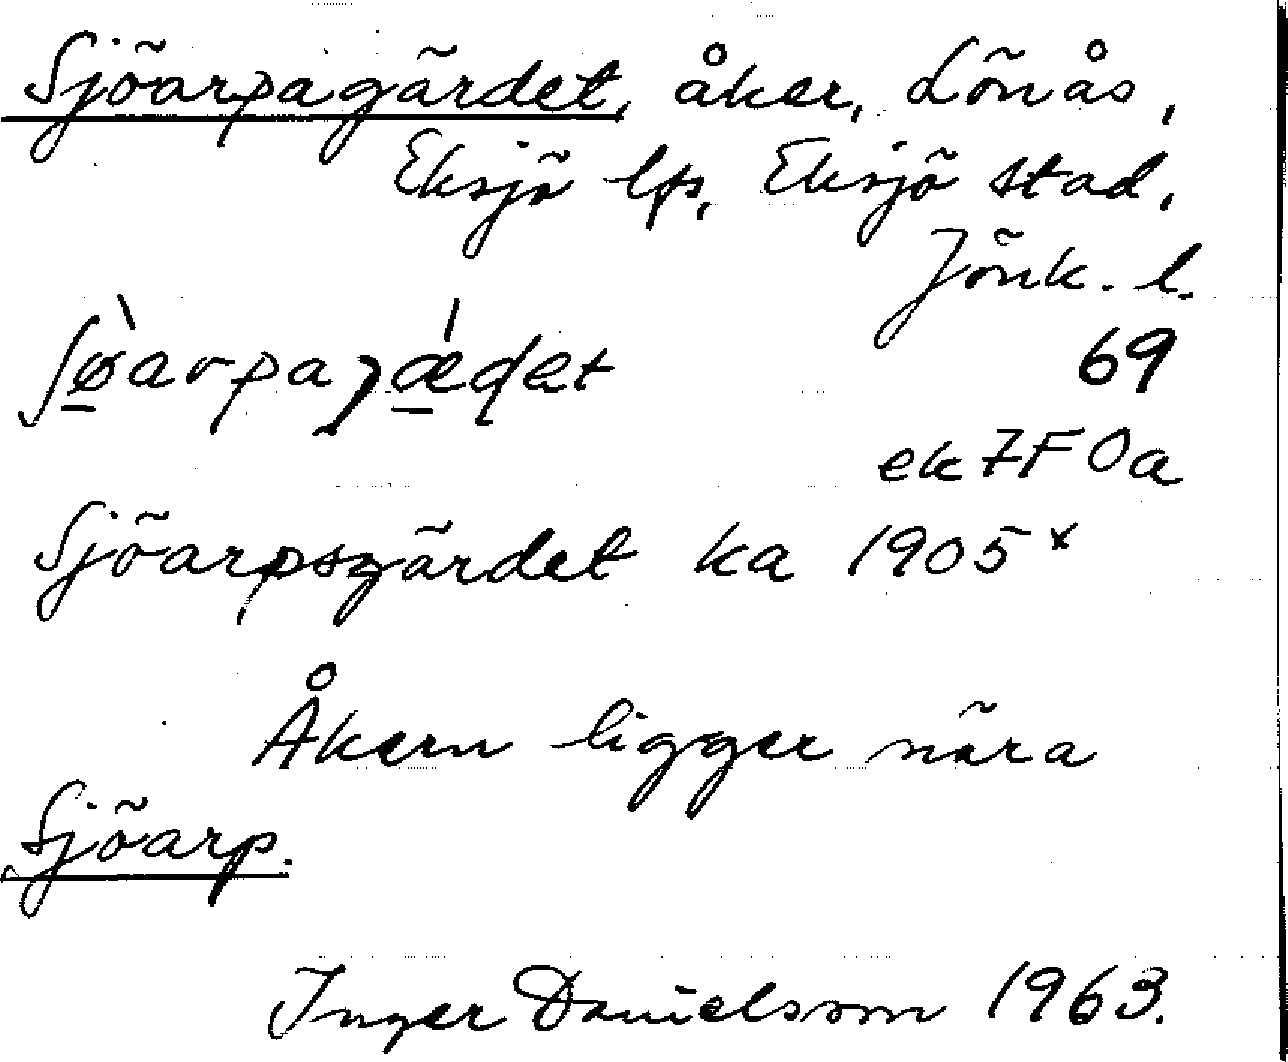 Sjöarpagärdet, åker, Lönås,
Eksjö lfs, Eksjö stad,
Jönk. l.
69
ek 7F 0a
Sjöarpsgärdet ka 1905 x
Åkern ligger nära
Sjöarp.
Inger Danielsson 1963.